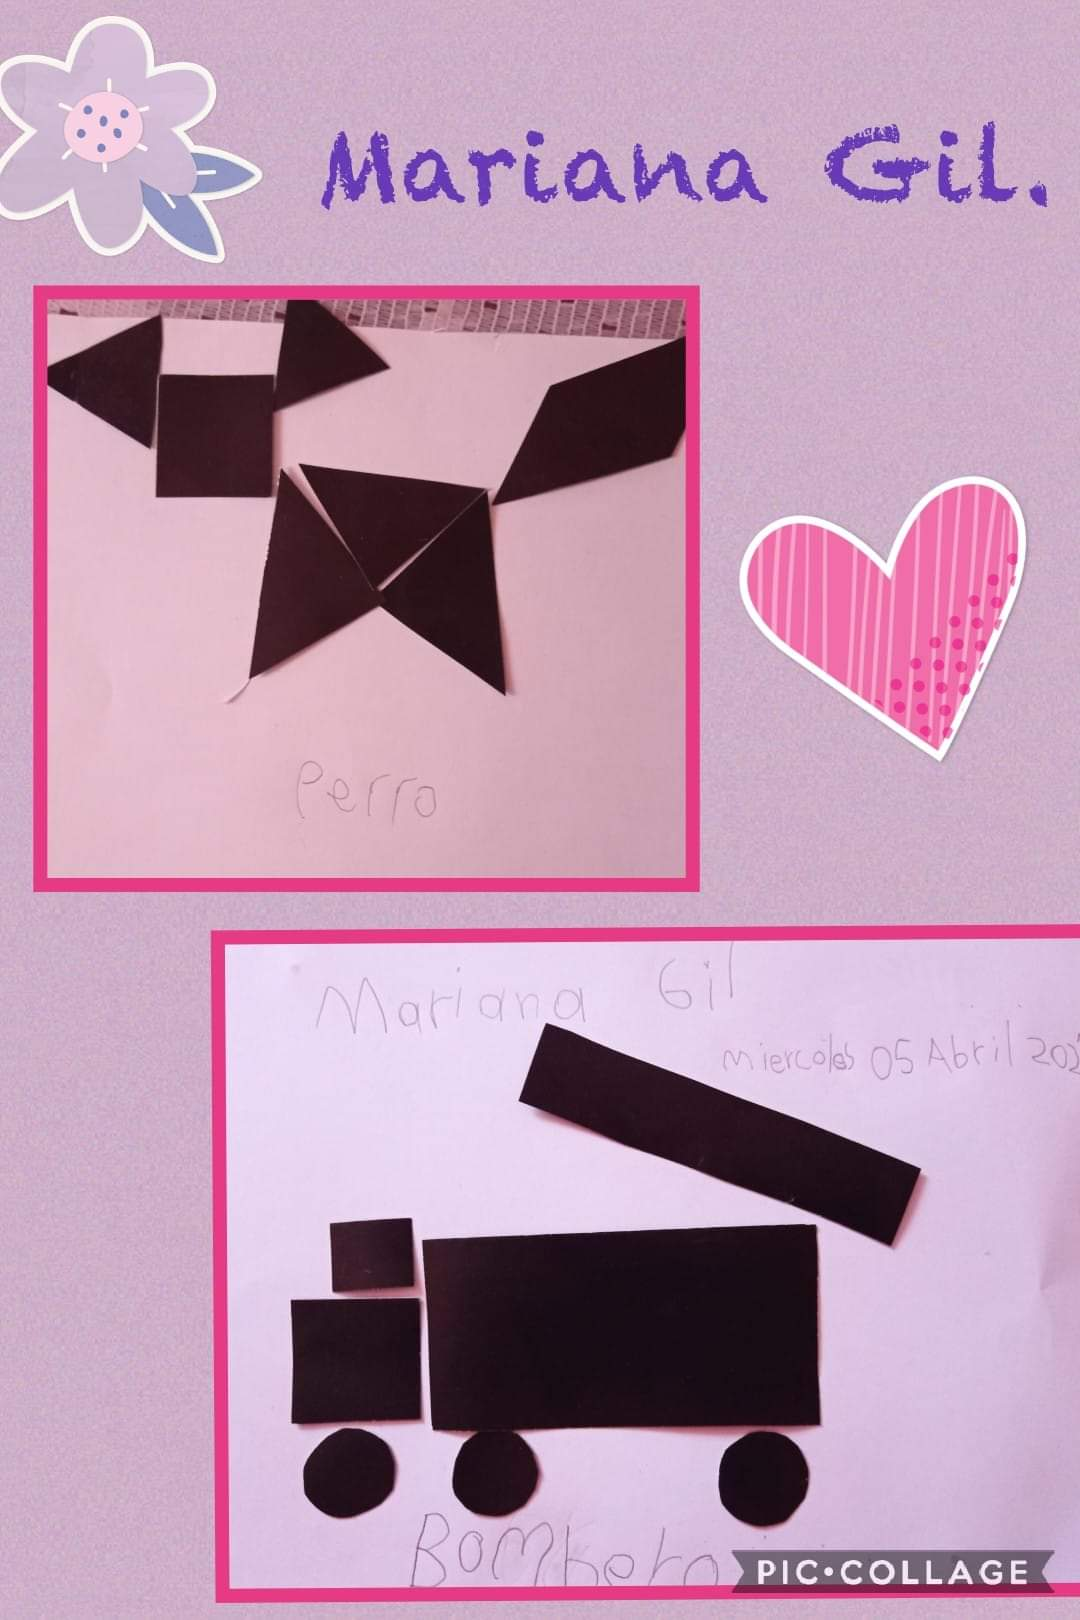 Mariana Gil.
Perro
Mariana Gil
miercoles 05 Abril 202
Bombero
PIC•COLLAGE